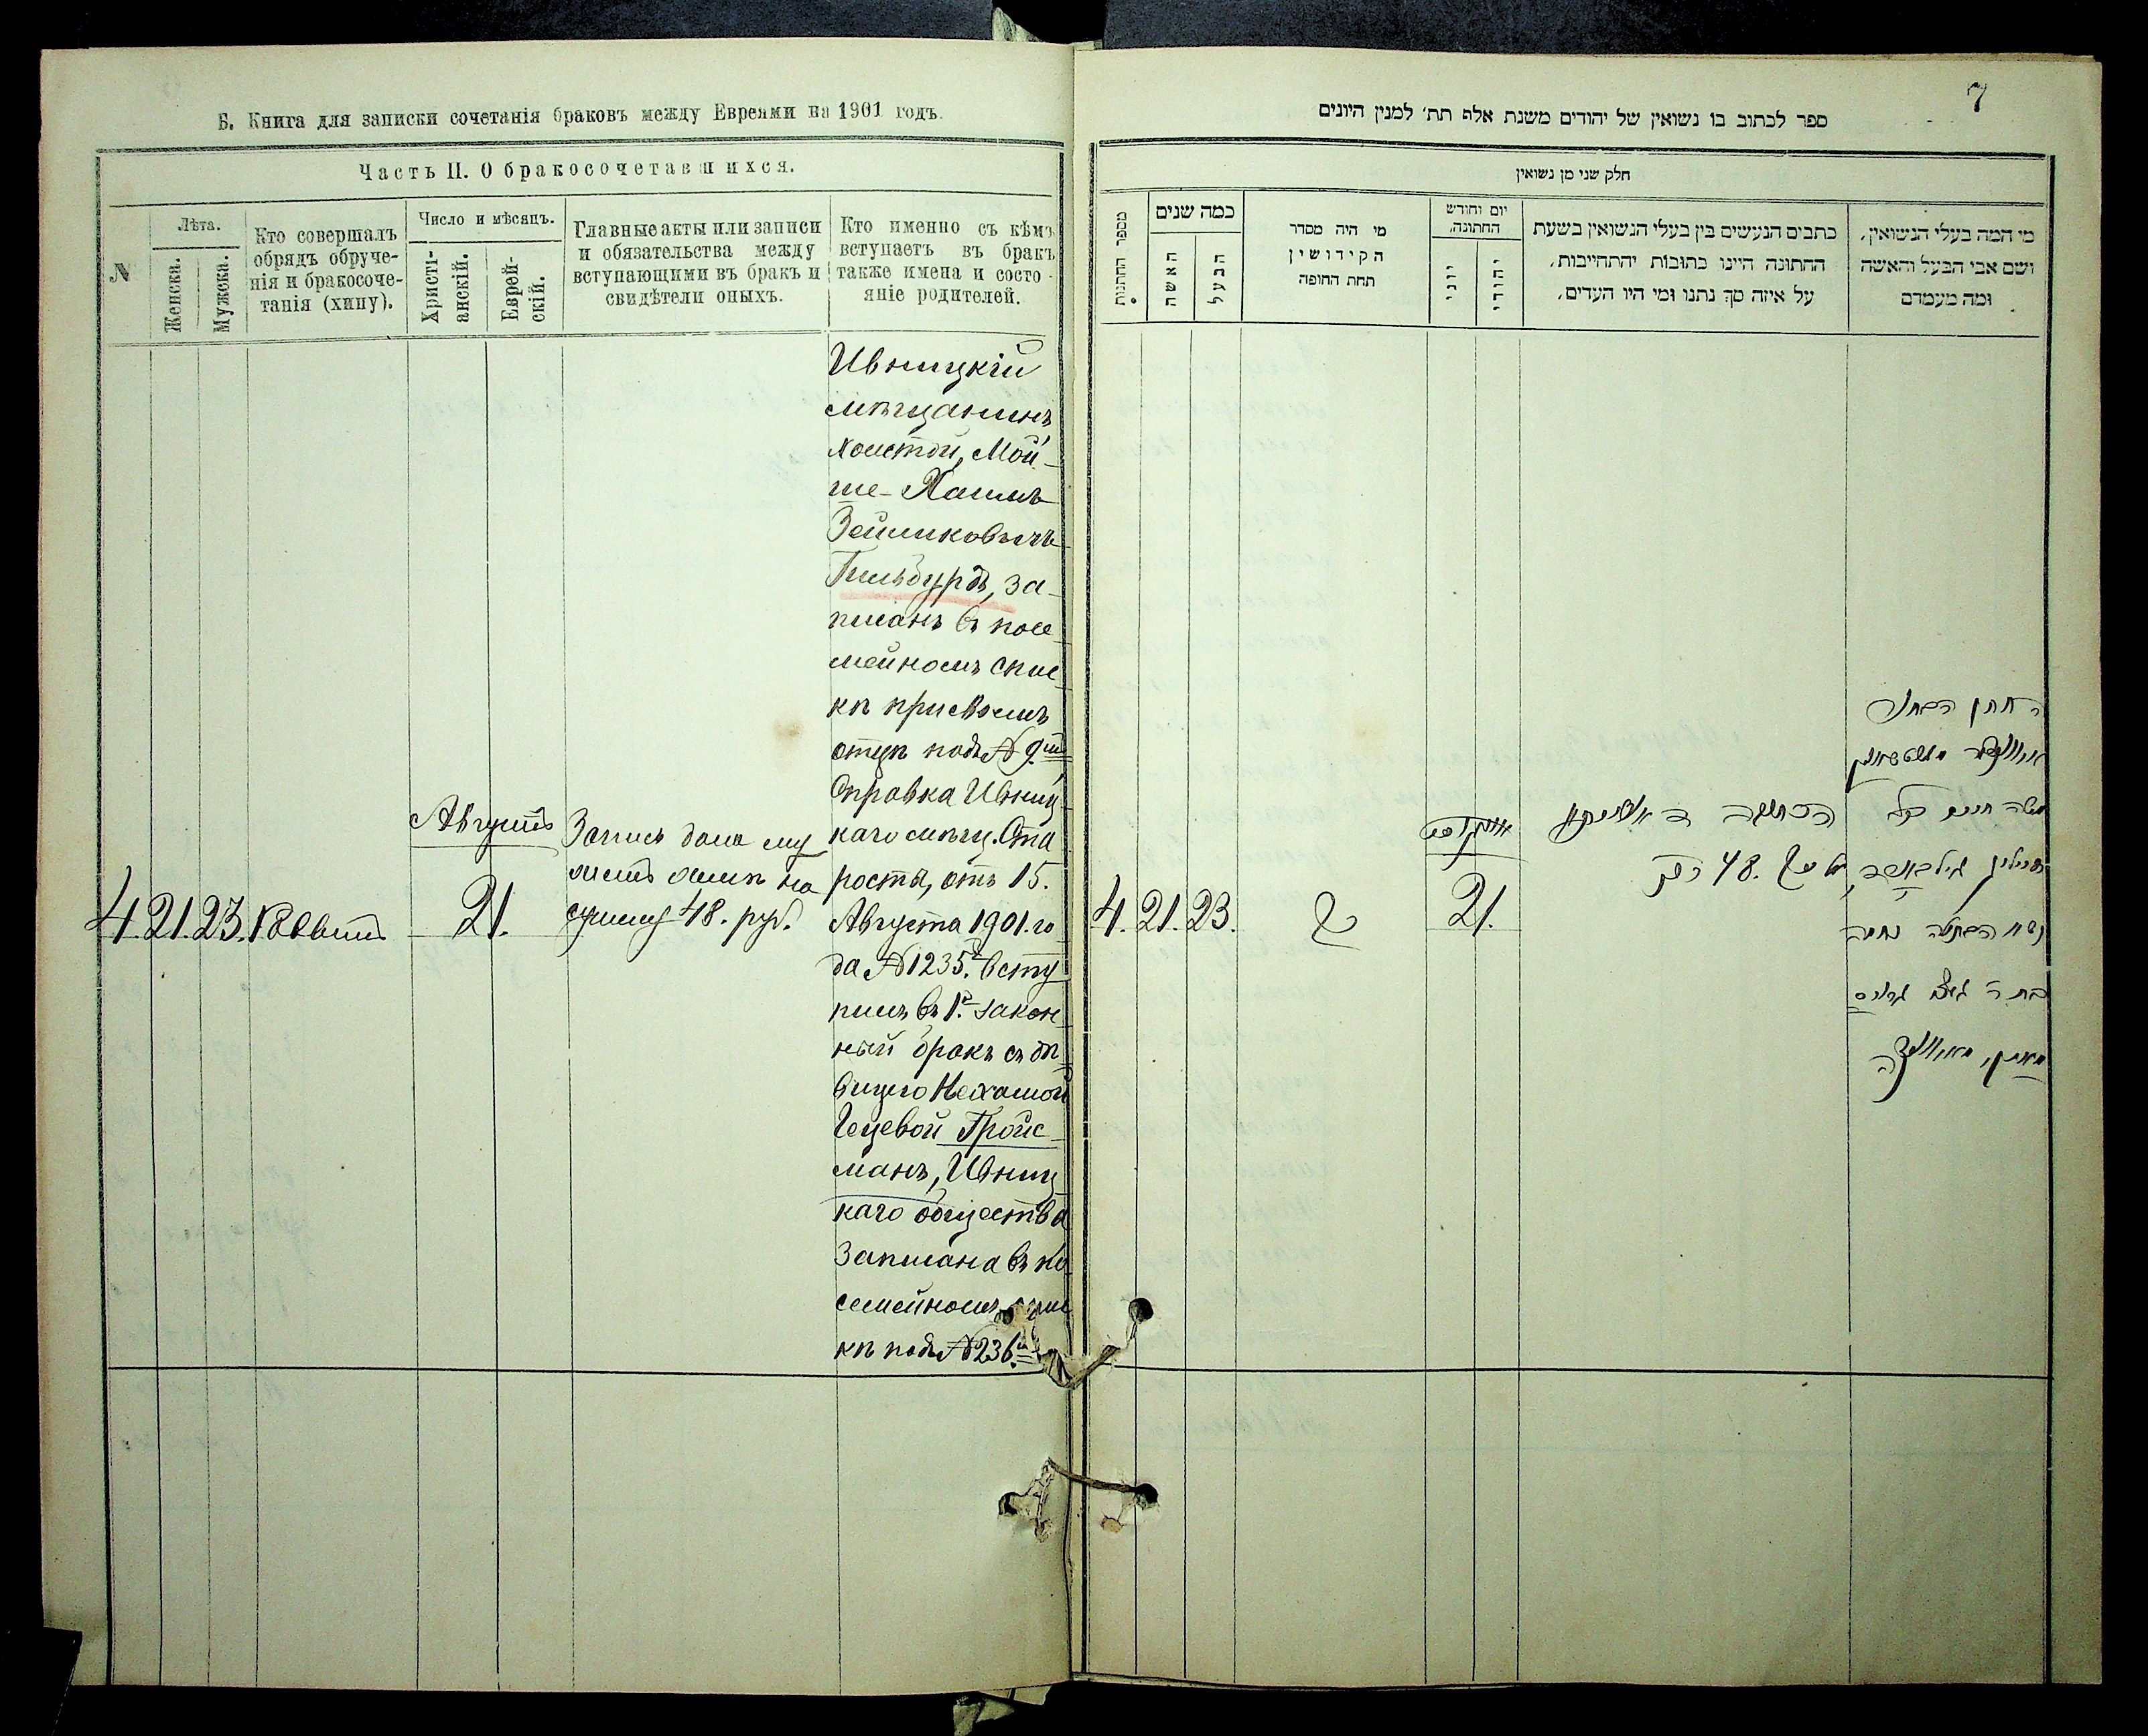 Б. Книга для записки сочетанія браковъ между Евреями на 1901 годъ.
Часть II. О бракосочетавшихся.
N
Лѣта.
Женска.
Мужска.
Кто совершалъ
обрядъ обруче-
нія и бракосоче-
танія (хипу).
Число и мѣсяцъ.
Христі-
анскій.
Еврей-
скій.
Главные акты или записи
и обязательства между
вступающими въ бракъ и
свидѣтели оныхъ.
Кто именно съ кѣмъ
вступаетъ въ бракъ
также имена и состо-
яніе родителей.
4. 21. 23. Раввинъ
Августъ
21.
Запись дана му
на
сумму 48. руб.
Ивницкій
мѣщанинъ
холстой, Мой-
ше-Хаимъ
Зейликовичъ
Гильбурдъ, за-
писанъ въ посе
мейномъ спис
кѣ при своемъ
отцѣ подъ N 9.
Справка Ивниц-
каго мѣщ. Ста
росты, отъ 15.
Августа 1901. го
да N 1235. Всту
пилъ въ 1й закон
ный бракъ съ дѣ
вицею Нехамой
Гецевой Гройс-
манъ, Ивниц
каго общества
Записана въ по
семейномъ спис
кѣ подъ N 236.
7
ספר לכתוב בו נשואין של יהודים משנת אלף תת׳ למנין היונים
חלק שני מן נשואין
מספר החתנות
כמה שנים
האשה
הבעל
מי היה מסדר
הקידושין
תחת החופה
יום וחודש
החתונה.
יוני
יהודי
כתבים הנעשים בין בעלי הנשואין בשעת
החתונה היינו כתובות יהתחייבות,
על איזה סך נתנו ומי היו העדים,
מי המה בעלי הנשואין,
ושם אבי הבעל והאשה
ומה מעמדם
4. 21. 23.
אויגוסט
21.
48
החתן הבחור
משה חיים
גילבורד